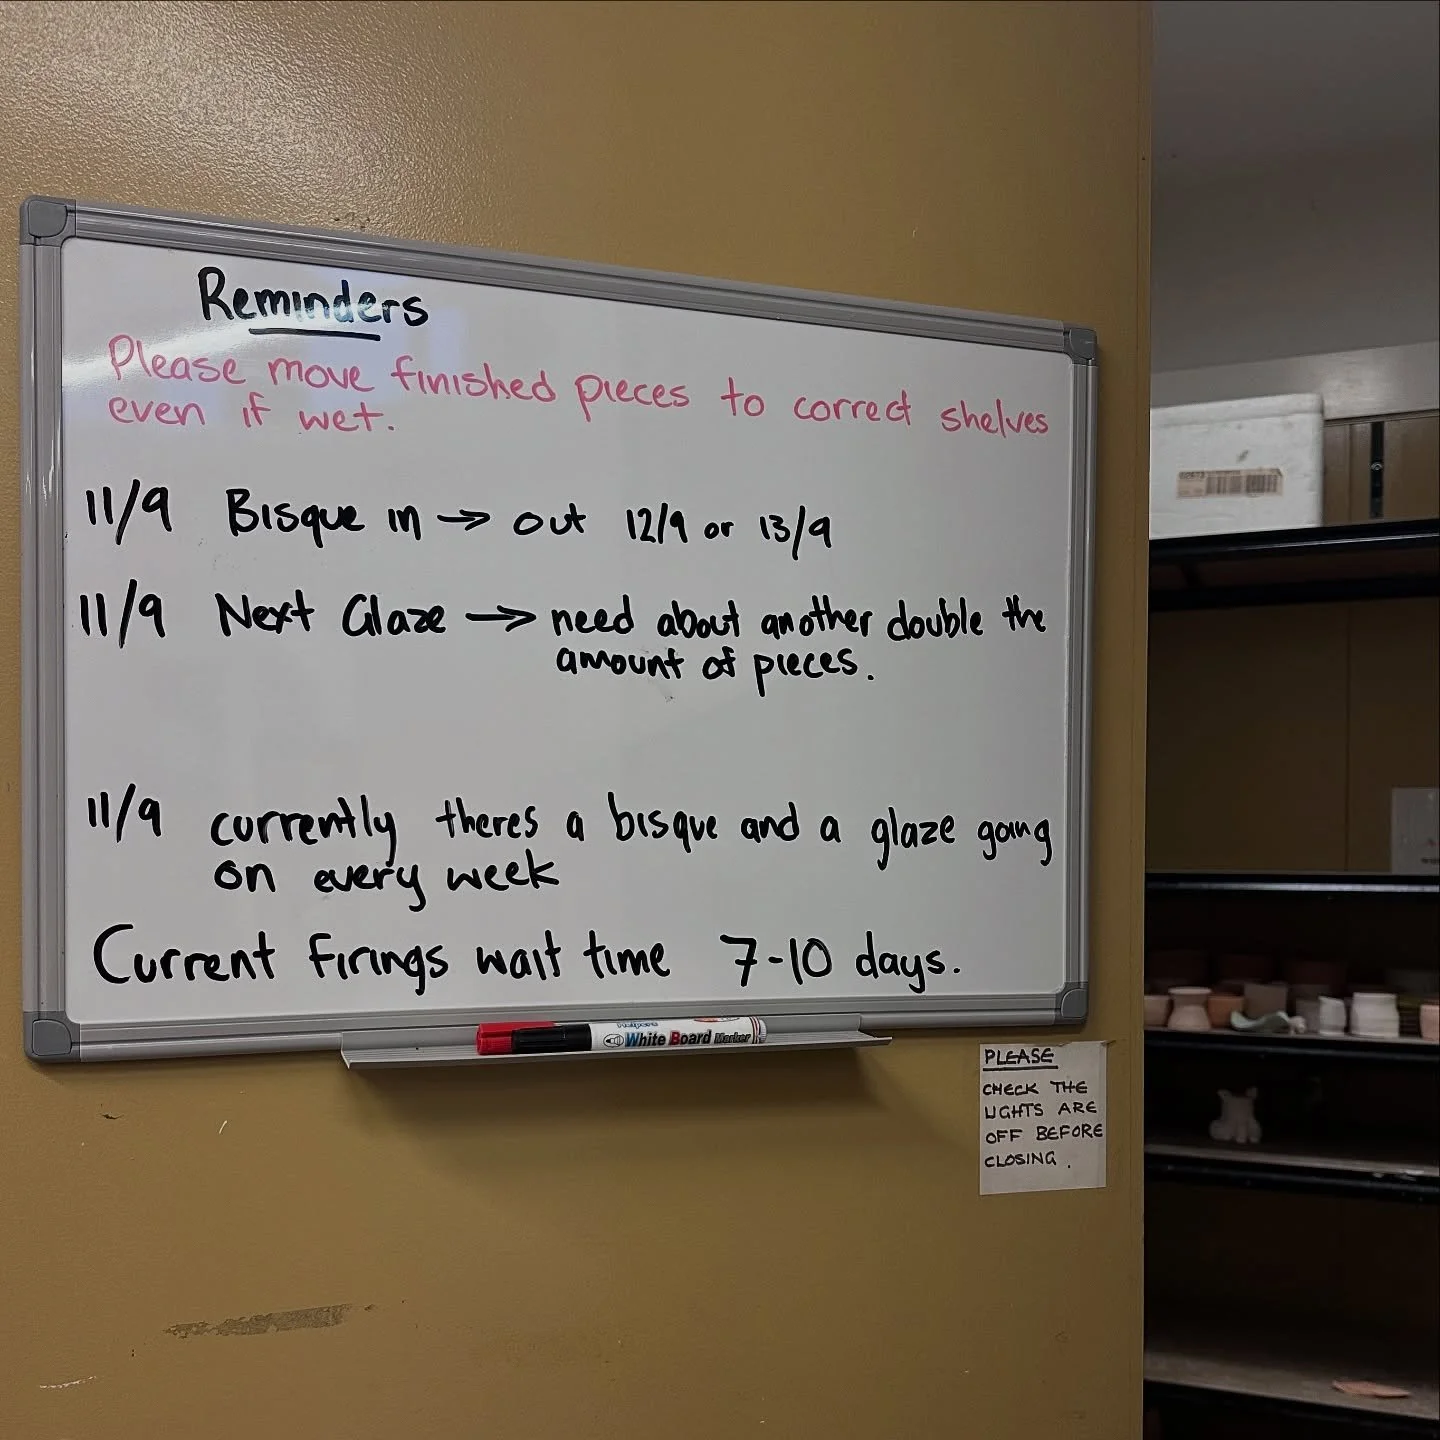 Reminders
Please move finished pieces to correct shelves
even if wet.
11/9 Bisque in → out 12/9 or 13/9
11/9 Next Glaze → need about another double the
amount of pieces.
11/9 currently theres a bisque and a glaze going
on every week
Current firings wait time 7-10 days.
White Board Marker
PLEASE
CHECK THE
LIGHTS ARE
OFF BEFORE
CLOSING.